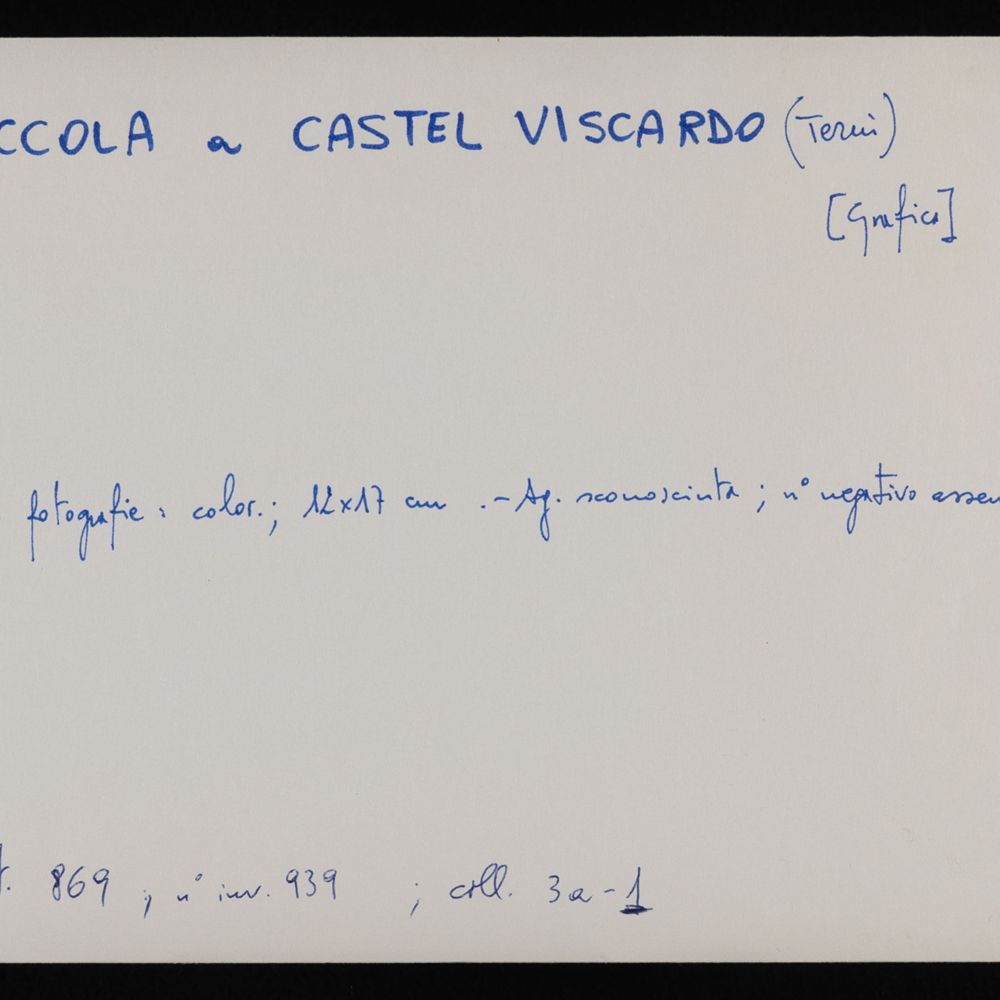 CCOLA a CASTEL VISCARDO (Terni)
[Grafica]
fotografie : color.; 12x17 cm .- Ag. sconosciuta ; n° negativo assen
t. 869 ; n° inv. 939 ; coll. 3a-1